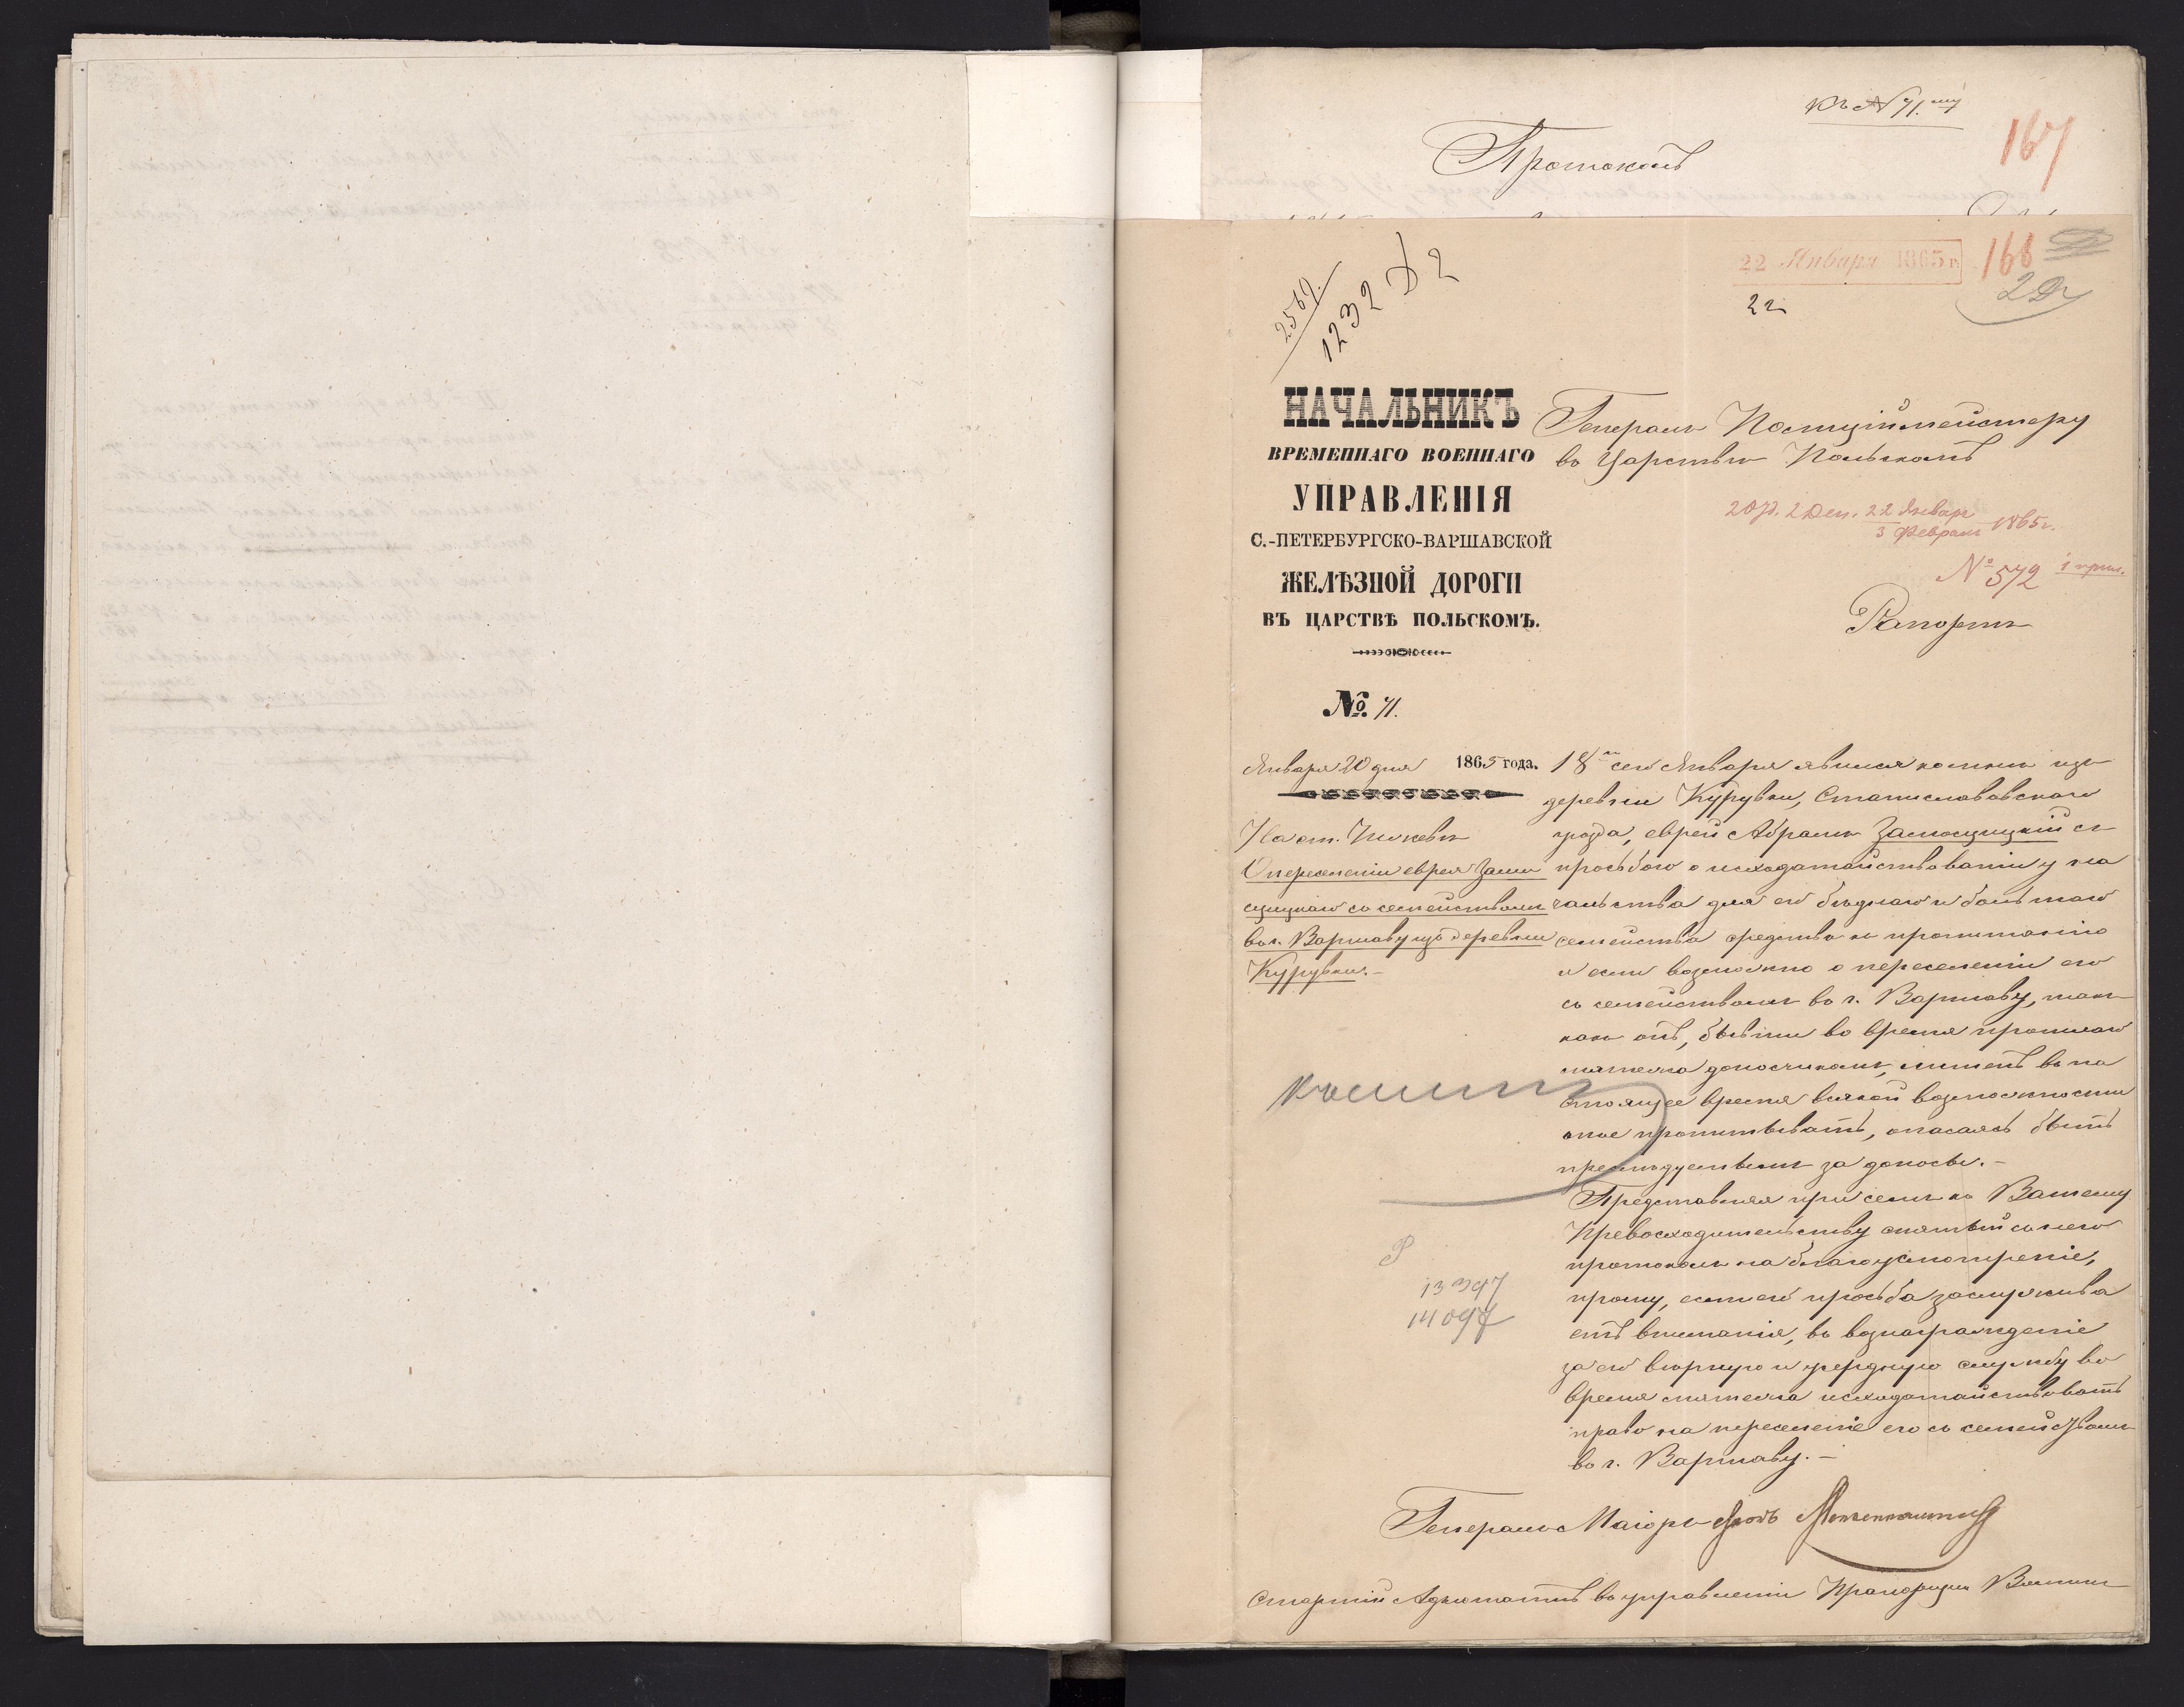 къ № 71.му
167
Протоколъ
22 Января 1865 г.
168
22
2569.
1232 Д 2
НАЧАЛЬНИКЪ
ВРЕМЕННАГО ВОЕННАГО
УПРАВЛЕНІЯ
С.-ПЕТЕРБУРГСКО-ВАРШАВСКОЙ
ЖЕЛѢЗНОЙ ДОРОГИ
ВЪ ЦАРСТВѢ ПОЛЬСКОМЪ.
№ 71.
Января 20 дня 1865 года.
На ст.
О переселеніи еврея Замо
сцицкаго съ семействомъ
въ г. Варшаву изъ деревни
Курувки.-
Генералъ Полиціймейстеру
въ Царствѣ Польскомъ
2 Деп. 22 Января
3 Февраля 1865 г.
№ 572 1 прил.
Рапортъ
18го сего Января явился ко мнѣ изъ
деревни Курувки, Станиславовскаго
уѣзда, еврей Абрамъ Замосцицкій съ
просьбою о исходатайствованіи у на
чальства для его бѣднаго и большаго
семейства средства къ пропитанію
и если возможно о переселеніи его
съ семействомъ въ г. Варшаву, такъ
какъ онъ, бывши во время прошлаго
мятежа доносчикомъ, лишенъ въ на
стоящее время всякой возможности
оное пропитывать, опасаясь быть
преслѣдуемымъ за доносы.-
Представляя при семъ къ Вашему
Превосходительству снятый съ него
протоколъ на благоусмотрѣніе,
прошу, если его просьба заслужива
етъ вниманія, въ вознагражденіе
за его вѣрную и усердную службу во
время мятежа исходатайствовать
право на переселеніе его съ семействомъ
въ г. Варшаву.-
13397
14097
Генералъ Маіоръ фонъ
Старшій Адъютантъ въ управленіи Прапорщикъ